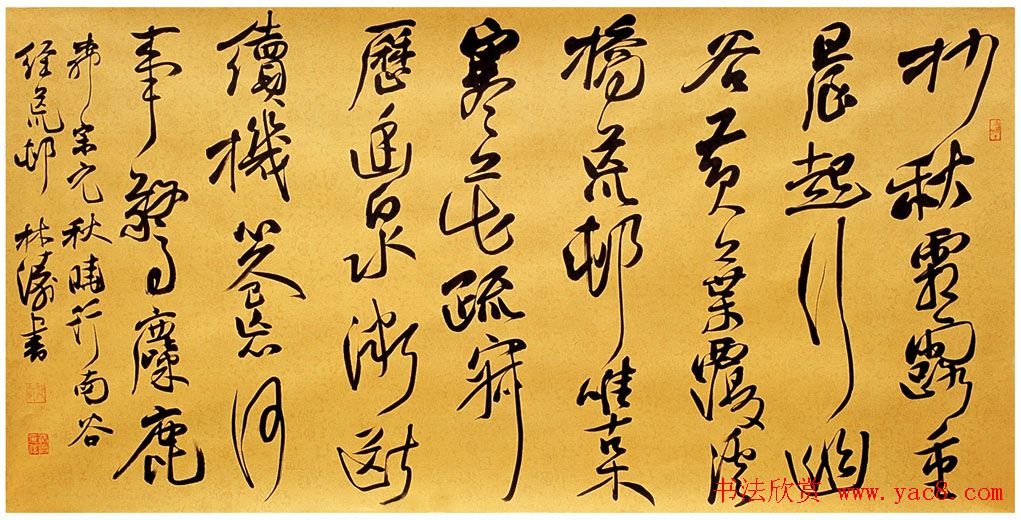 杪秋霜露重
晨起行幽
谷黃葉覆溪
橋荒邨唯古木
寒花疏寂
歷幽泉微斷
續機心久已忘何
事驚麋鹿
柳宗元秋曉行南谷
經荒邨 林濤書
书法欣赏 www.yac8.com